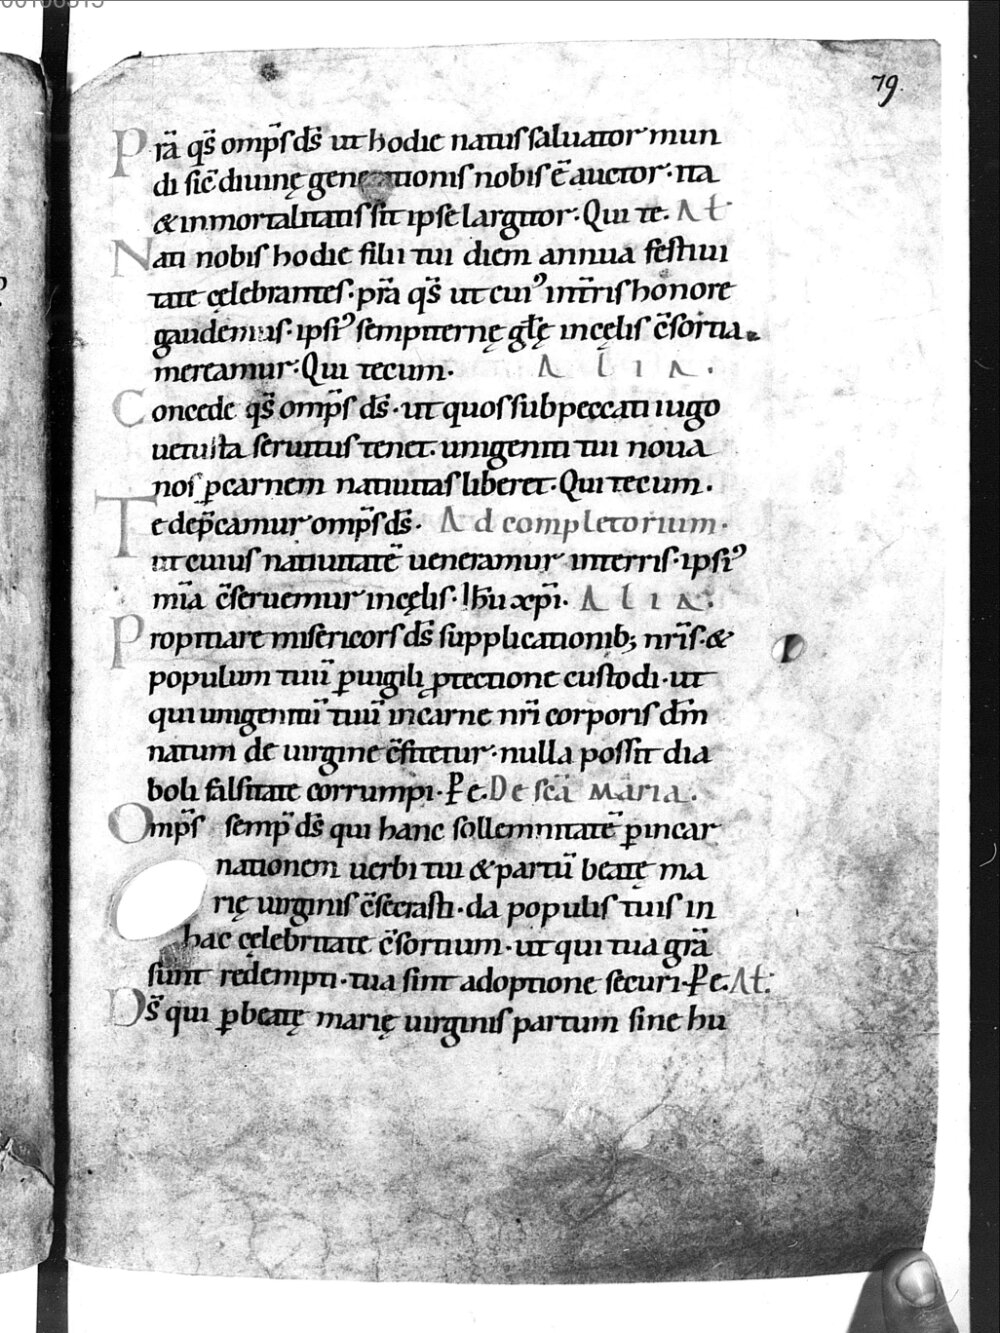 79.
Prā qs̄ omp̄s ds̄ ut hodie natus saluator mun
di sic̄ diuinę generationis nobis ē auctor· ita
& inmortalitatis sit ipse largitor· Qui te. At
Nati nobis hodie filii tui diem annua festiui
tate cęlebrantes· prā qs̄ ut cui⁹ int̄ris honore
gaudemus· ipsi⁹ sempiternę gl̄ę incęlis c̄sortia
mereamur· Qui tecum. Alia.
Concede qs̄ omp̄s ds̄· ut quos sub peccati iugo
uetusta seruitus tenet· unigeniti tui noua
nos ꝑcarnem natiuitas liberet· Qui tecum.
Te dep̄camur omp̄s ds̄· Ad completorium·
ut cuius natiuitatē ueneramur interris· ipsi⁹
mīa c̄seruemur incęlis· Ih̄u xp̄i. Alia.
Propitiare misericors ds̄ supplicationib; nrīs· &
populum tuū ꝑuigili ꝓtectione custodi· ut
qui unigenitū tuū incarne nrī corporis dm̄
natum de uirgine c̄fitetur· nulla possit dia
boli falsitate corrumpi· ꝑ e. De scā Maria.
Omp̄s semp̄ ds̄ qui hanc sollemnitatē ꝑincar
nationem uerbi tui & partū beatę ma
rię uirginis c̄secrasti· da populis tuis in
hac cęlebritate c̄sortium· ut qui tua grā
sunt redempti· tua sint adoptione securi· ꝑ e. At·
Ds̄ qui ꝑbeatę marię uirginis partum sine hu